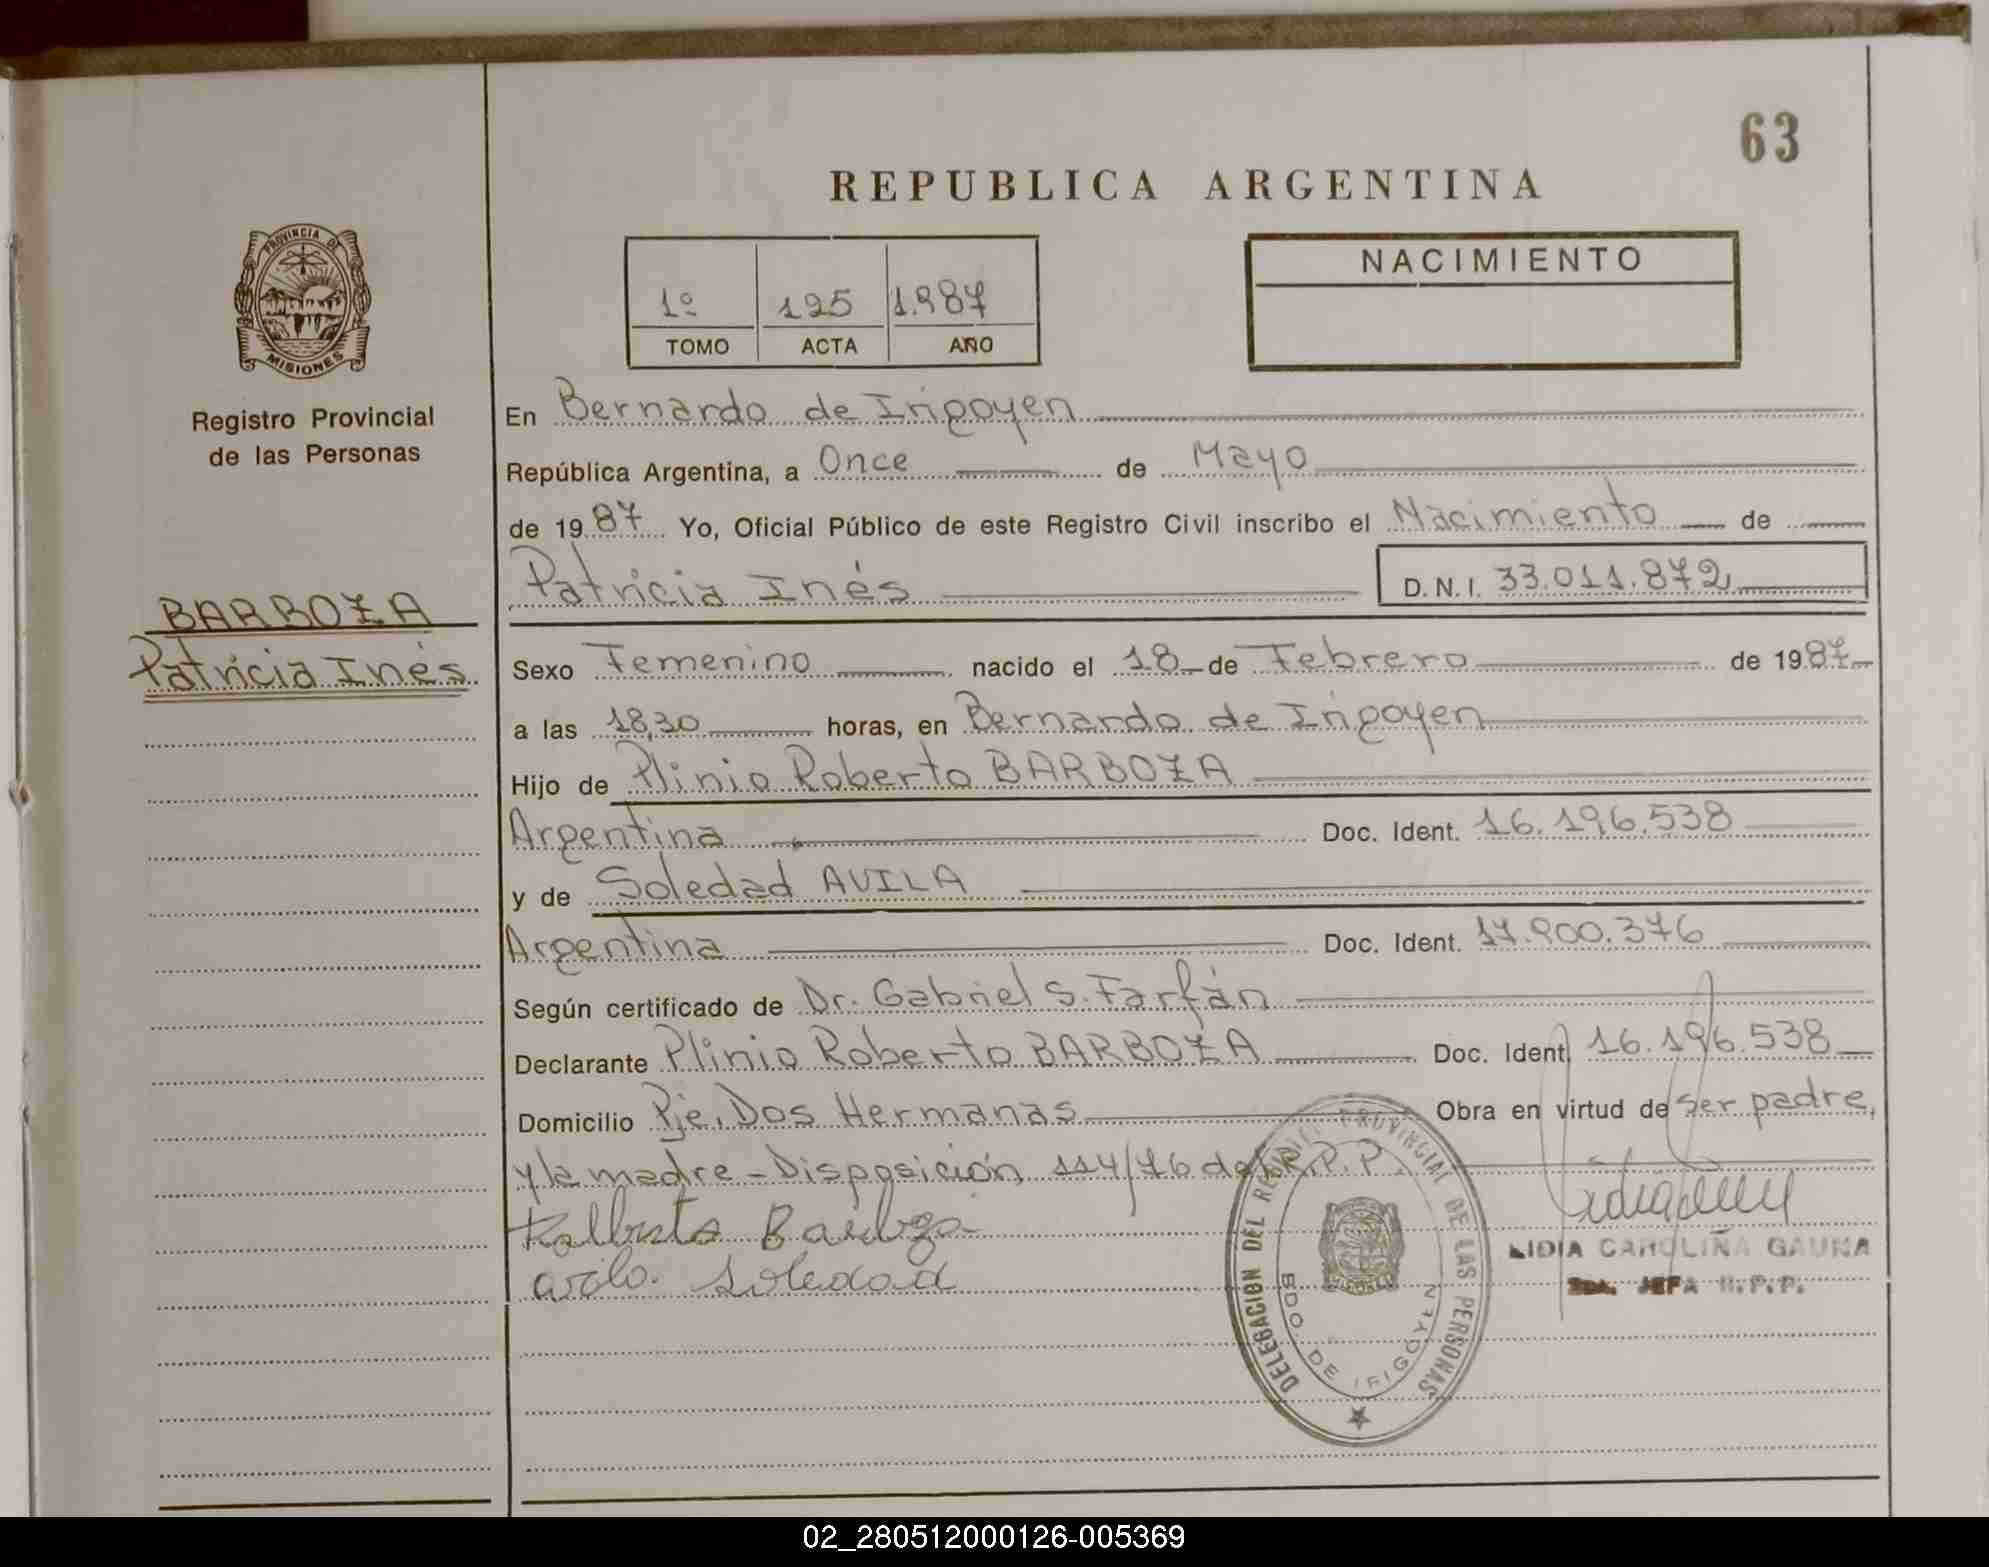 63
REPUBLICA ARGENTINA
PROVINCIA DE
MISIONES
Registro Provincial
de las Personas
1º 125 1.987
TOMO ACTA AÑO
NACIMIENTO
En Bernardo de Irigoyen
República Argentina, a Once de Mayo
de 1987 Yo, Oficial Público de este Registro Civil inscribo el Nacimiento de
Patricia Inés D.N.I. 33.011.872
BARBOZA
Patricia Inés
Sexo Femenino nacido el 18 de Febrero de 1987
a las 18,30 horas, en Bernardo de Irigoyen
Hijo de Plinio Roberto BARBOZA
Argentina Doc. Ident. 16.196.538
y de Soledad AVILA
Argentina Doc. Ident. 17.900.376
Según certificado de Dr. Gabriel S. Farfán
Declarante Plinio Roberto BARBOZA Doc. Ident. 16.196.538
Domicilio Pje. Dos Hermanas Obra en virtud de ser padre,
y la madre - Disposición 114/76 del R.P.P.
Barboza
Soledad
DELEGACION DEL REGISTRO PROVINCIAL DE LAS PERSONAS
BDO. DE IRIGOYEN
LIDIA CAROLINA GAUNA
2da. JEFA R.P.P.
02_280512000126-005369